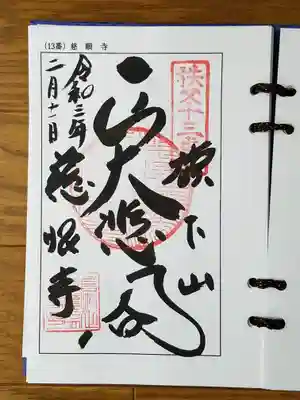 (13番) 慈眼寺
秩父十三番
旗下山
大悲
慈眼寺
令和三年
二月十一日